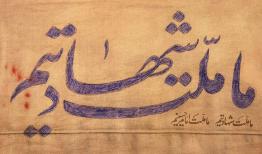 ما ملّت شهادتیم
ما ملت شهادتیم ما ملت امام حسینیم